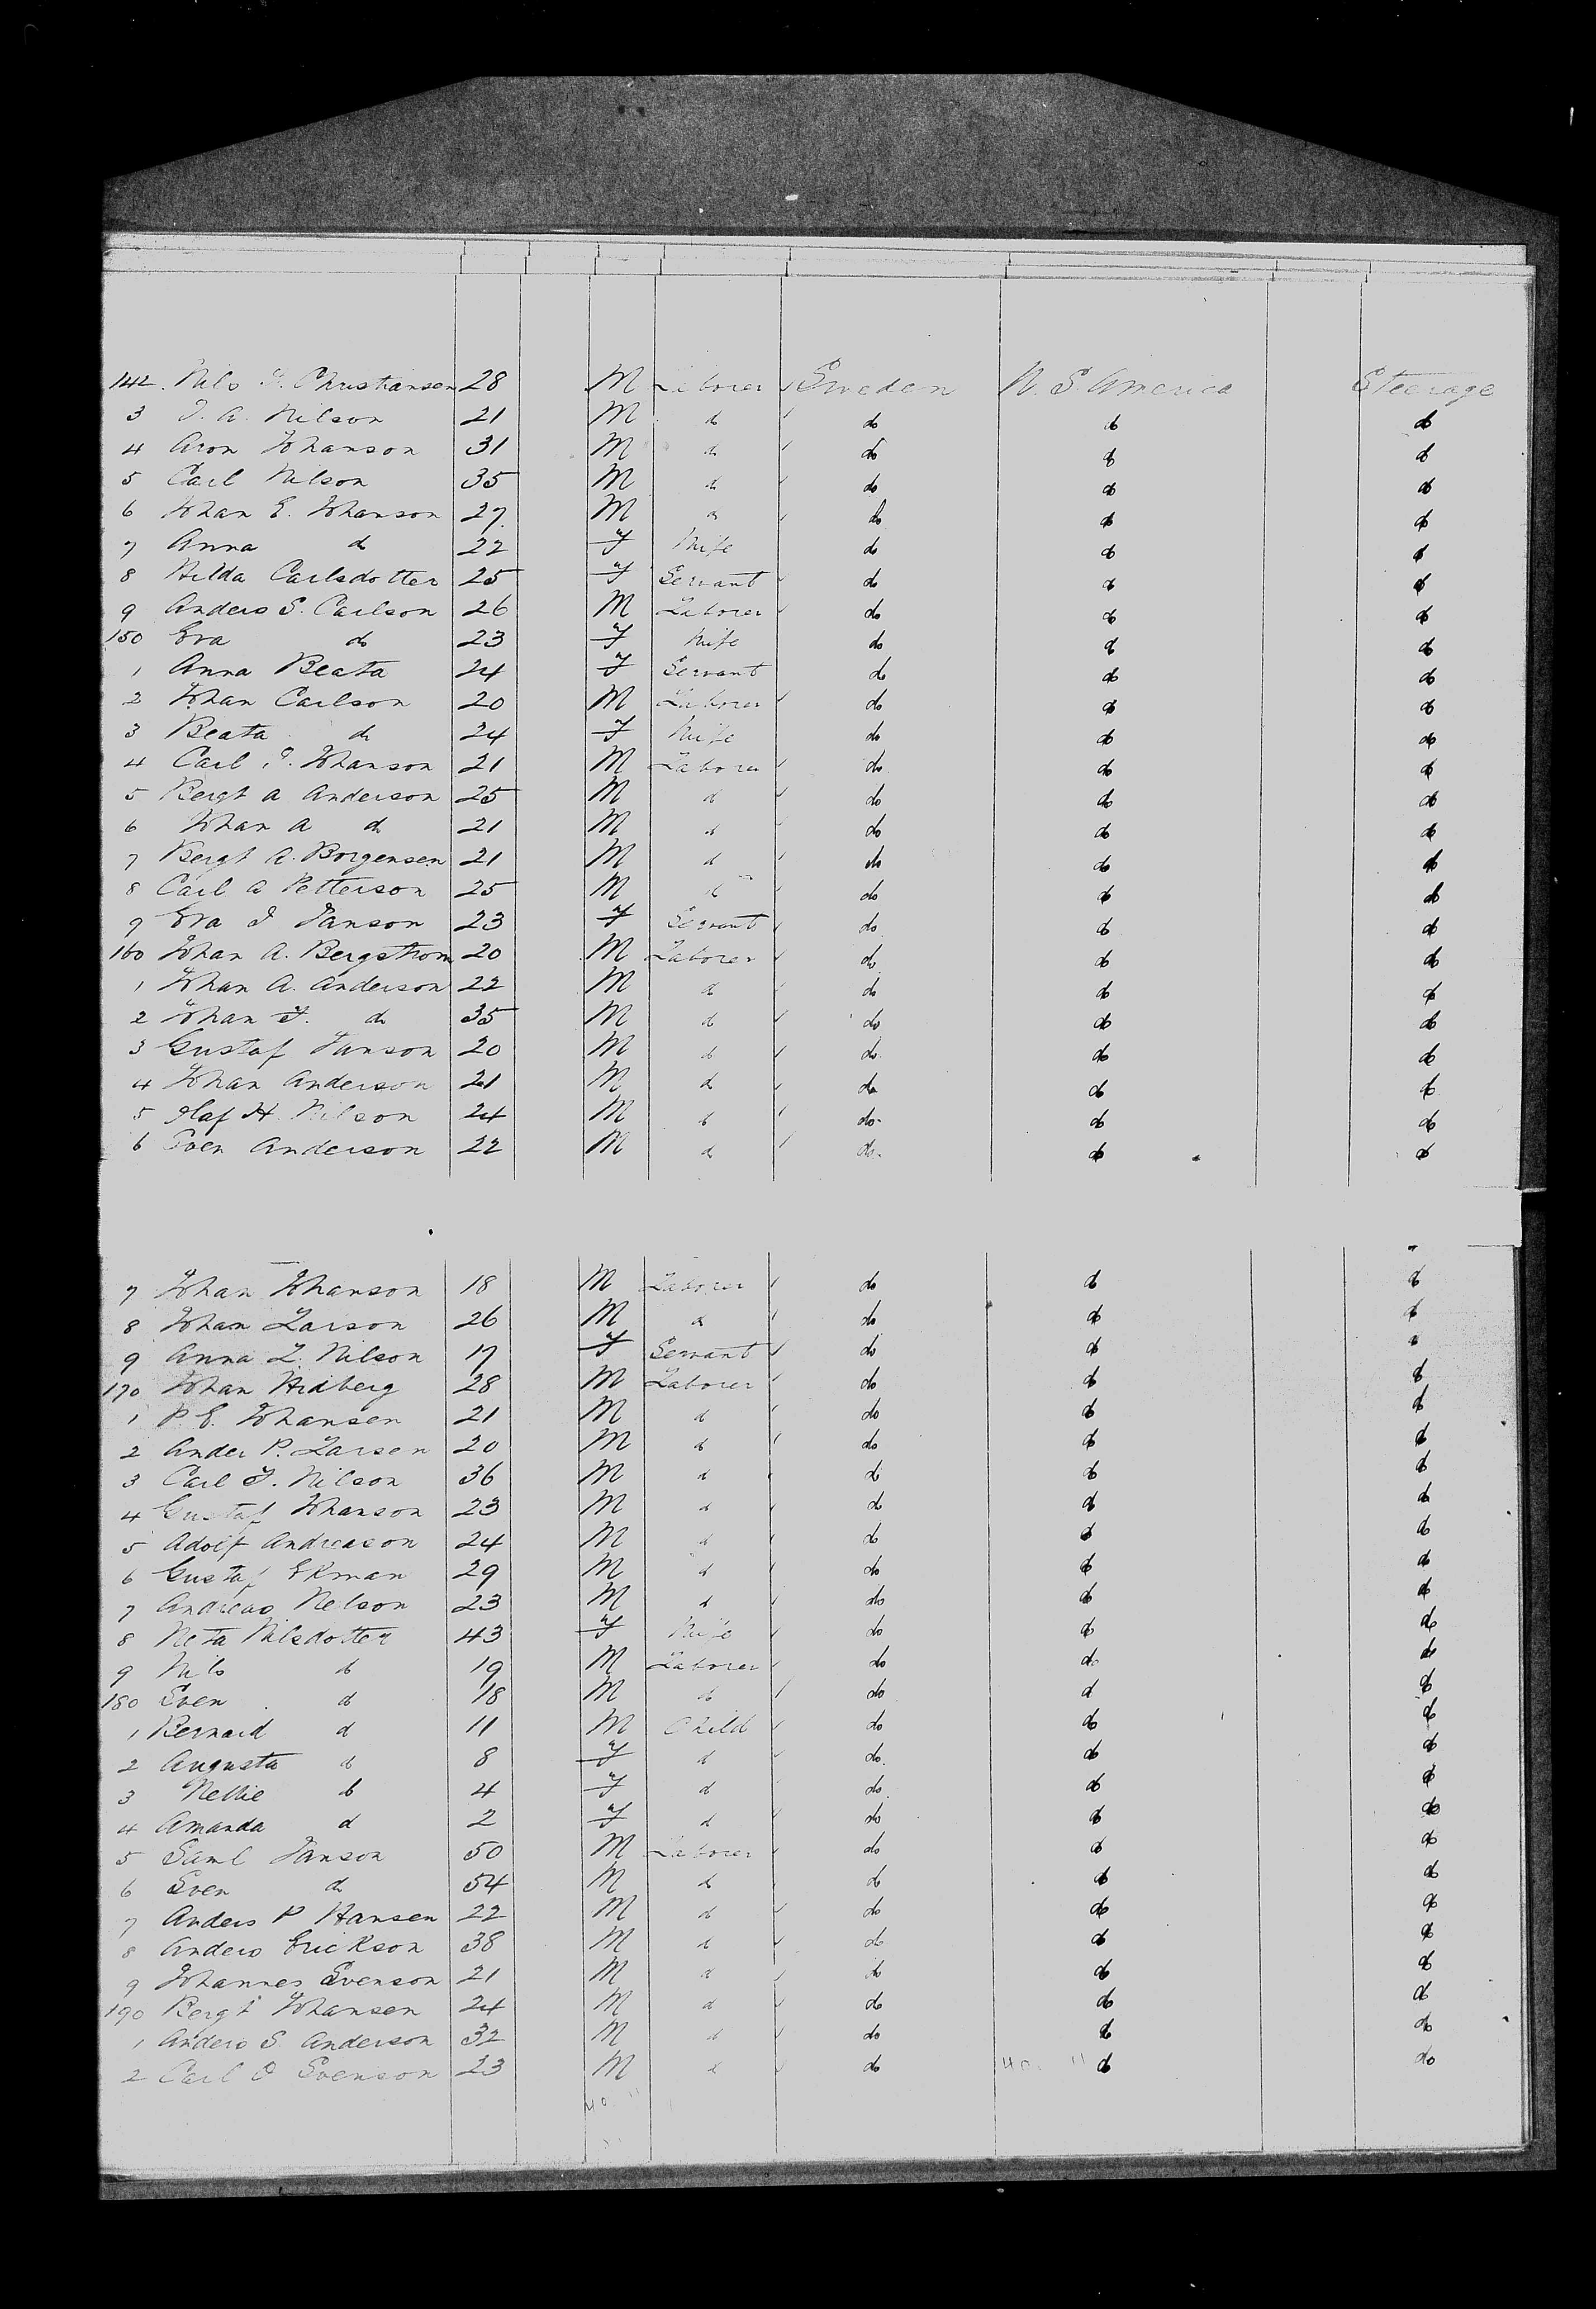 142. Nils J. Christiansen 28 M Laborer Sweden U. S. America Steerage
3 J. A. Nilson 21 M do do do do
4 Aron Johanson 31 M do do do do
5 Carl Nilson 35 M do do do do
6 Johan E. Johanson 27 M do do do do
7 Anna do 22 F Wife do do do
8 Hilda Carlsdotter 25 F Servant do do do
9 Anders S. Carlson 26 M Laborer do do do
150 Eva do 23 F Wife do do do
1 Anna Beata 24 F Servant do do do
2 Johan Carlson 20 M Laborer do do do
3 Beata do 24 F Wife do do do
4 Carl J. Johanson 21 M Laborer do do do
5 Bergt A Anderson 25 M do do do do
6 Johan A do 21 M do do do do
7 Bergt A. Borgensen 21 M do do do do
8 Carl A Petterson 25 M do do do do
9 Eva J Janson 23 F Servant do do do
160 Johan A. Bergstrom 20 M Laborer do do do
1 Johan A. Anderson 22 M do do do do
2 Johan F. do 35 M do do do do
3 Gustaf Janson 20 M do do do do
4 Johan Anderson 21 M do do do do
5 Olaf H. Nilson 24 M do do do do
6 Sven Anderson 22 M do do do do
7 Johan Johanson 18 M Laborer do do do
8 Johan Larson 26 M do do do do
9 Anna L. Nilson 17 F Servant do do do
170 Johan Hidberg 28 M Laborer do do do
1 P. E. Johansen 21 M do do do do
2 Ander P. Larsen 20 M do do do do
3 Carl F. Nilson 36 M do do do do
4 Gustaf Johanson 23 M do do do do
5 Adolf Andreason 24 M do do do do
6 Gustaf Ekman 29 M do do do do
7 Andreas Nelson 23 M do do do do
8 Neta Nilsdotter 43 F Wife do do do
9 Nils do 19 M Laborer do do do
180 Sven do 18 M do do do do
1 Bernard do 11 M Child do do do
2 Augusta do 8 F do do do do
3 Nellie do 4 F do do do do
4 Amanda do 2 F do do do do
5 Saml Janson 50 M Laborer do do do
6 Sven do 54 M do do do do
7 Anders P Hansen 22 M do do do do
8 Anders Erickson 38 M do do do do
9 Johannes Svenson 21 M do do do do
190 Bergt Johansen 24 M do do do do
1 Anders S. Anderson 32 M do do do do
2 Carl O Svenson 23 M do do 40 11 do do
40 11